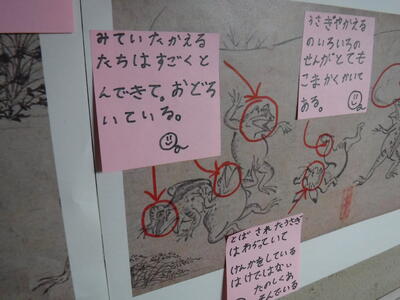 みていたかえる
たちはすごくと
んできて。おどろ
いている。
うさぎやかえる
のいろいろの
せんがとても
こまかくかいて
ある。
とばされたうさぎ
はわらっていて
けんかをしている
わけではない
たのしくあ
そんでいる